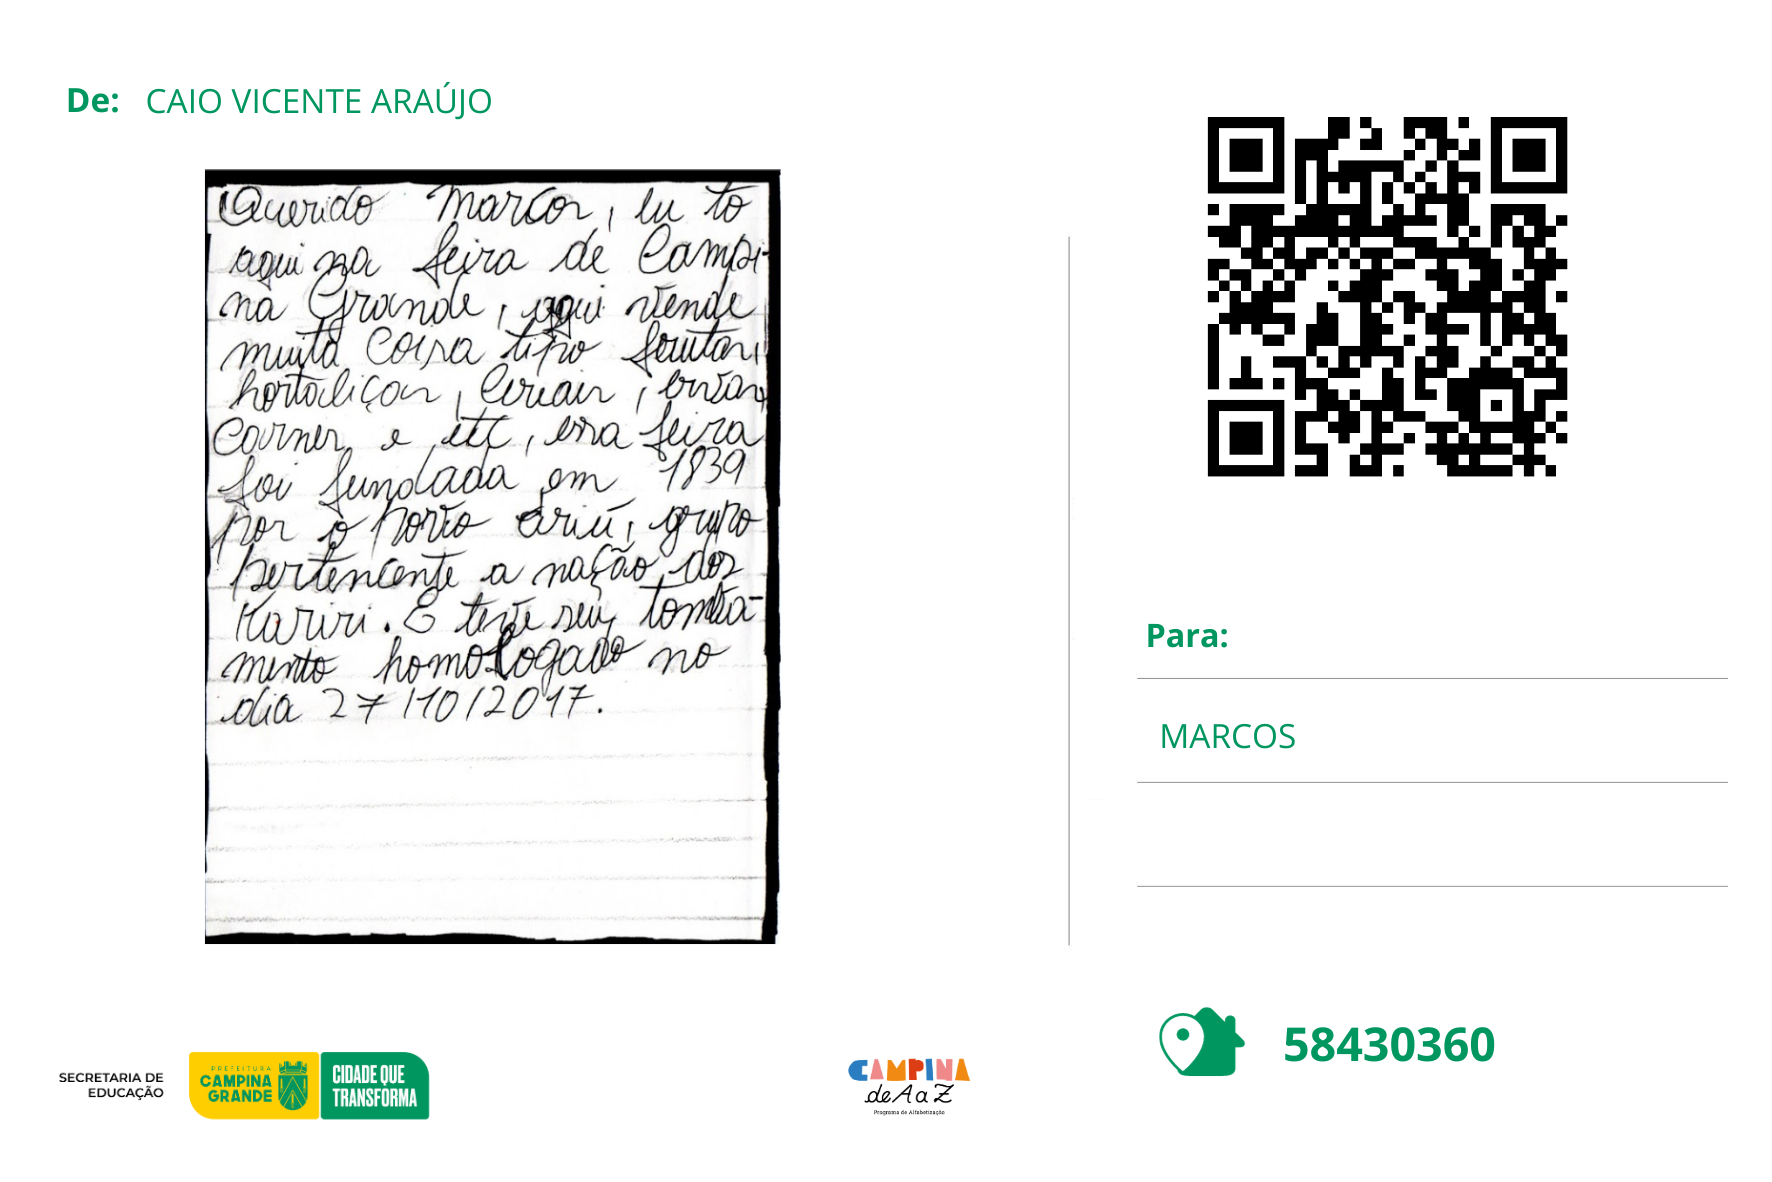 De: CAIO VICENTE ARAÚJO
Querido Marcos, eu to
aqui na feira de Campi-
na Grande, aqui vende
muita coisa tipo frutas,
hortaliças, cereais, ervas,
carnes e etc, essa feira
foi fundada em 1839
por o povo ariú, grupo
pertencente a nação dos
Kariri. E teve seu tomba-
mento homologado no
dia 27/10/2017.
Para:
MARCOS
58430360
SECRETARIA DE
EDUCAÇÃO
PREFEITURA
CAMPINA
GRANDE
CIDADE QUE
TRANSFORMA
CAMPINA
de A a Z
Programa de Alfabetização